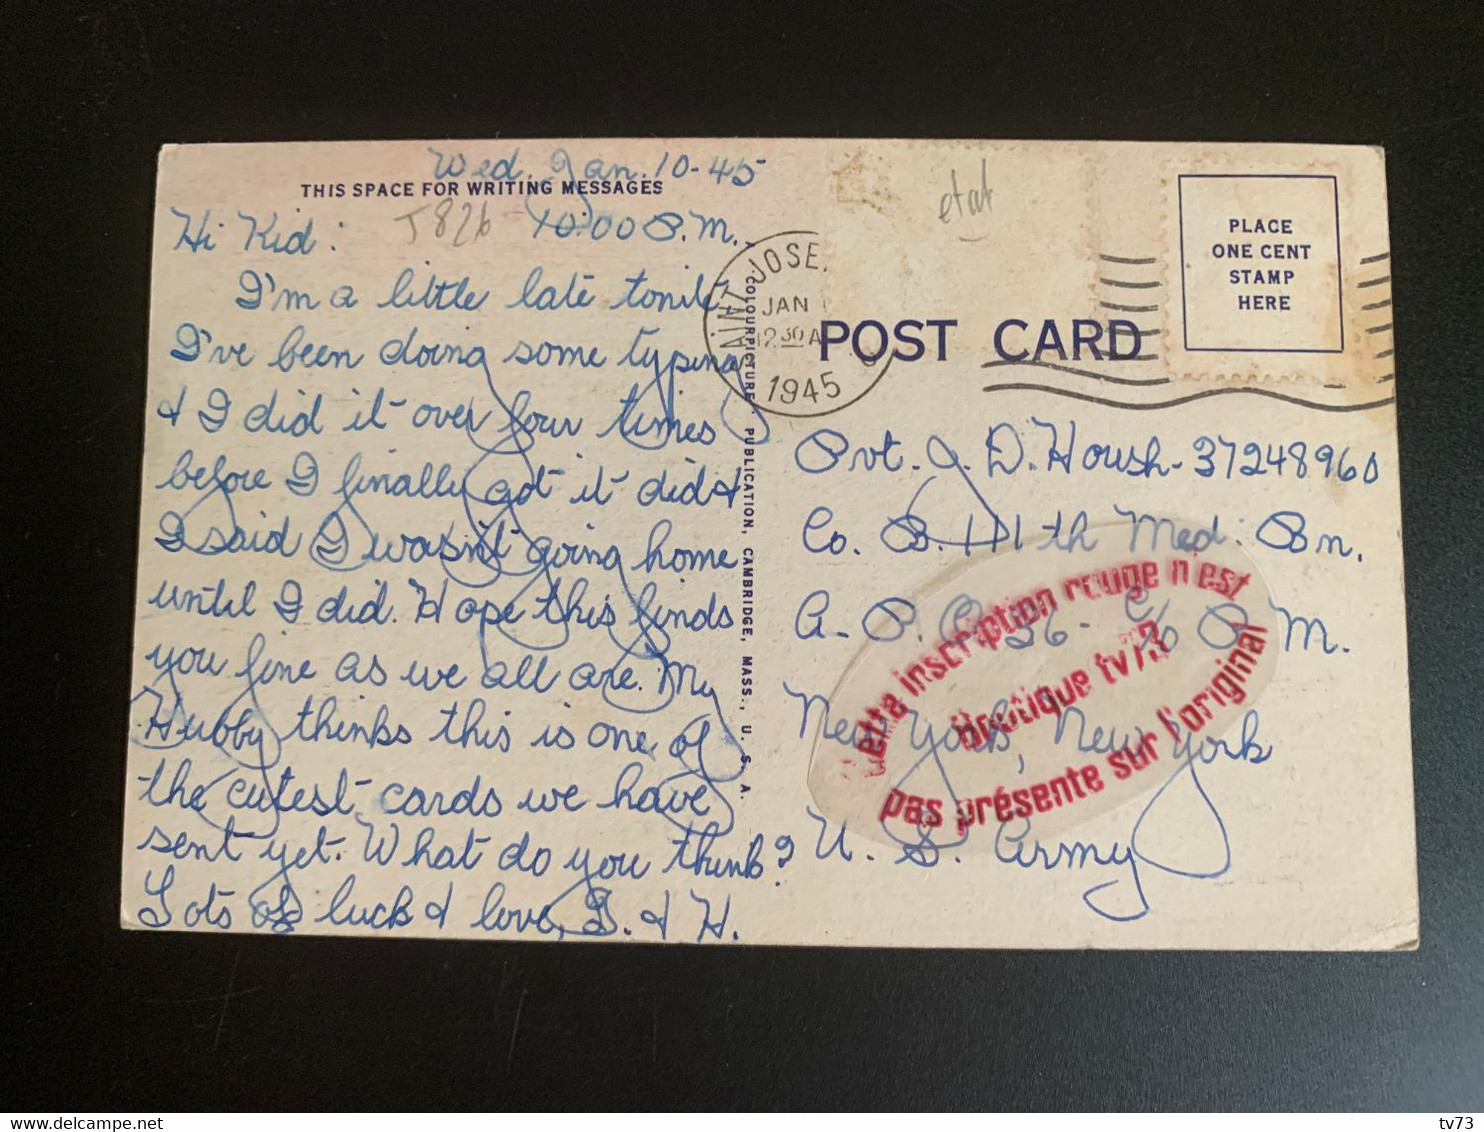 Wed. Jan. 10-45
THIS SPACE FOR WRITING MESSAGES
Hi Kid: J826 10:00 P.M.
I'm a little late tonite
I've been doing some typing
& I did it over four times
before I finally got it did &
I said I wasn't going home
until I did. Hope this finds
you fine as we all are. My
Hubby thinks this is one of
the cutest cards we have
sent yet. What do you think?
Lots of luck & love, G. & H.
COLOURPICTURE PUBLICATION, CAMBRIDGE, MASS., U. S. A.
SAINT JOSE
JAN
12 30 A
1945
etat
PLACE
ONE CENT
STAMP
HERE
POST CARD
Pvt. J. D. Housh - 37248960
Co. B. 111th Med. Bn.
A. P. O. 36 - c/o P. M.
New York, New York
U. S. Army
Cette inscription rouge n'est
Boutique tv73
pas présente sur l'original
tv73